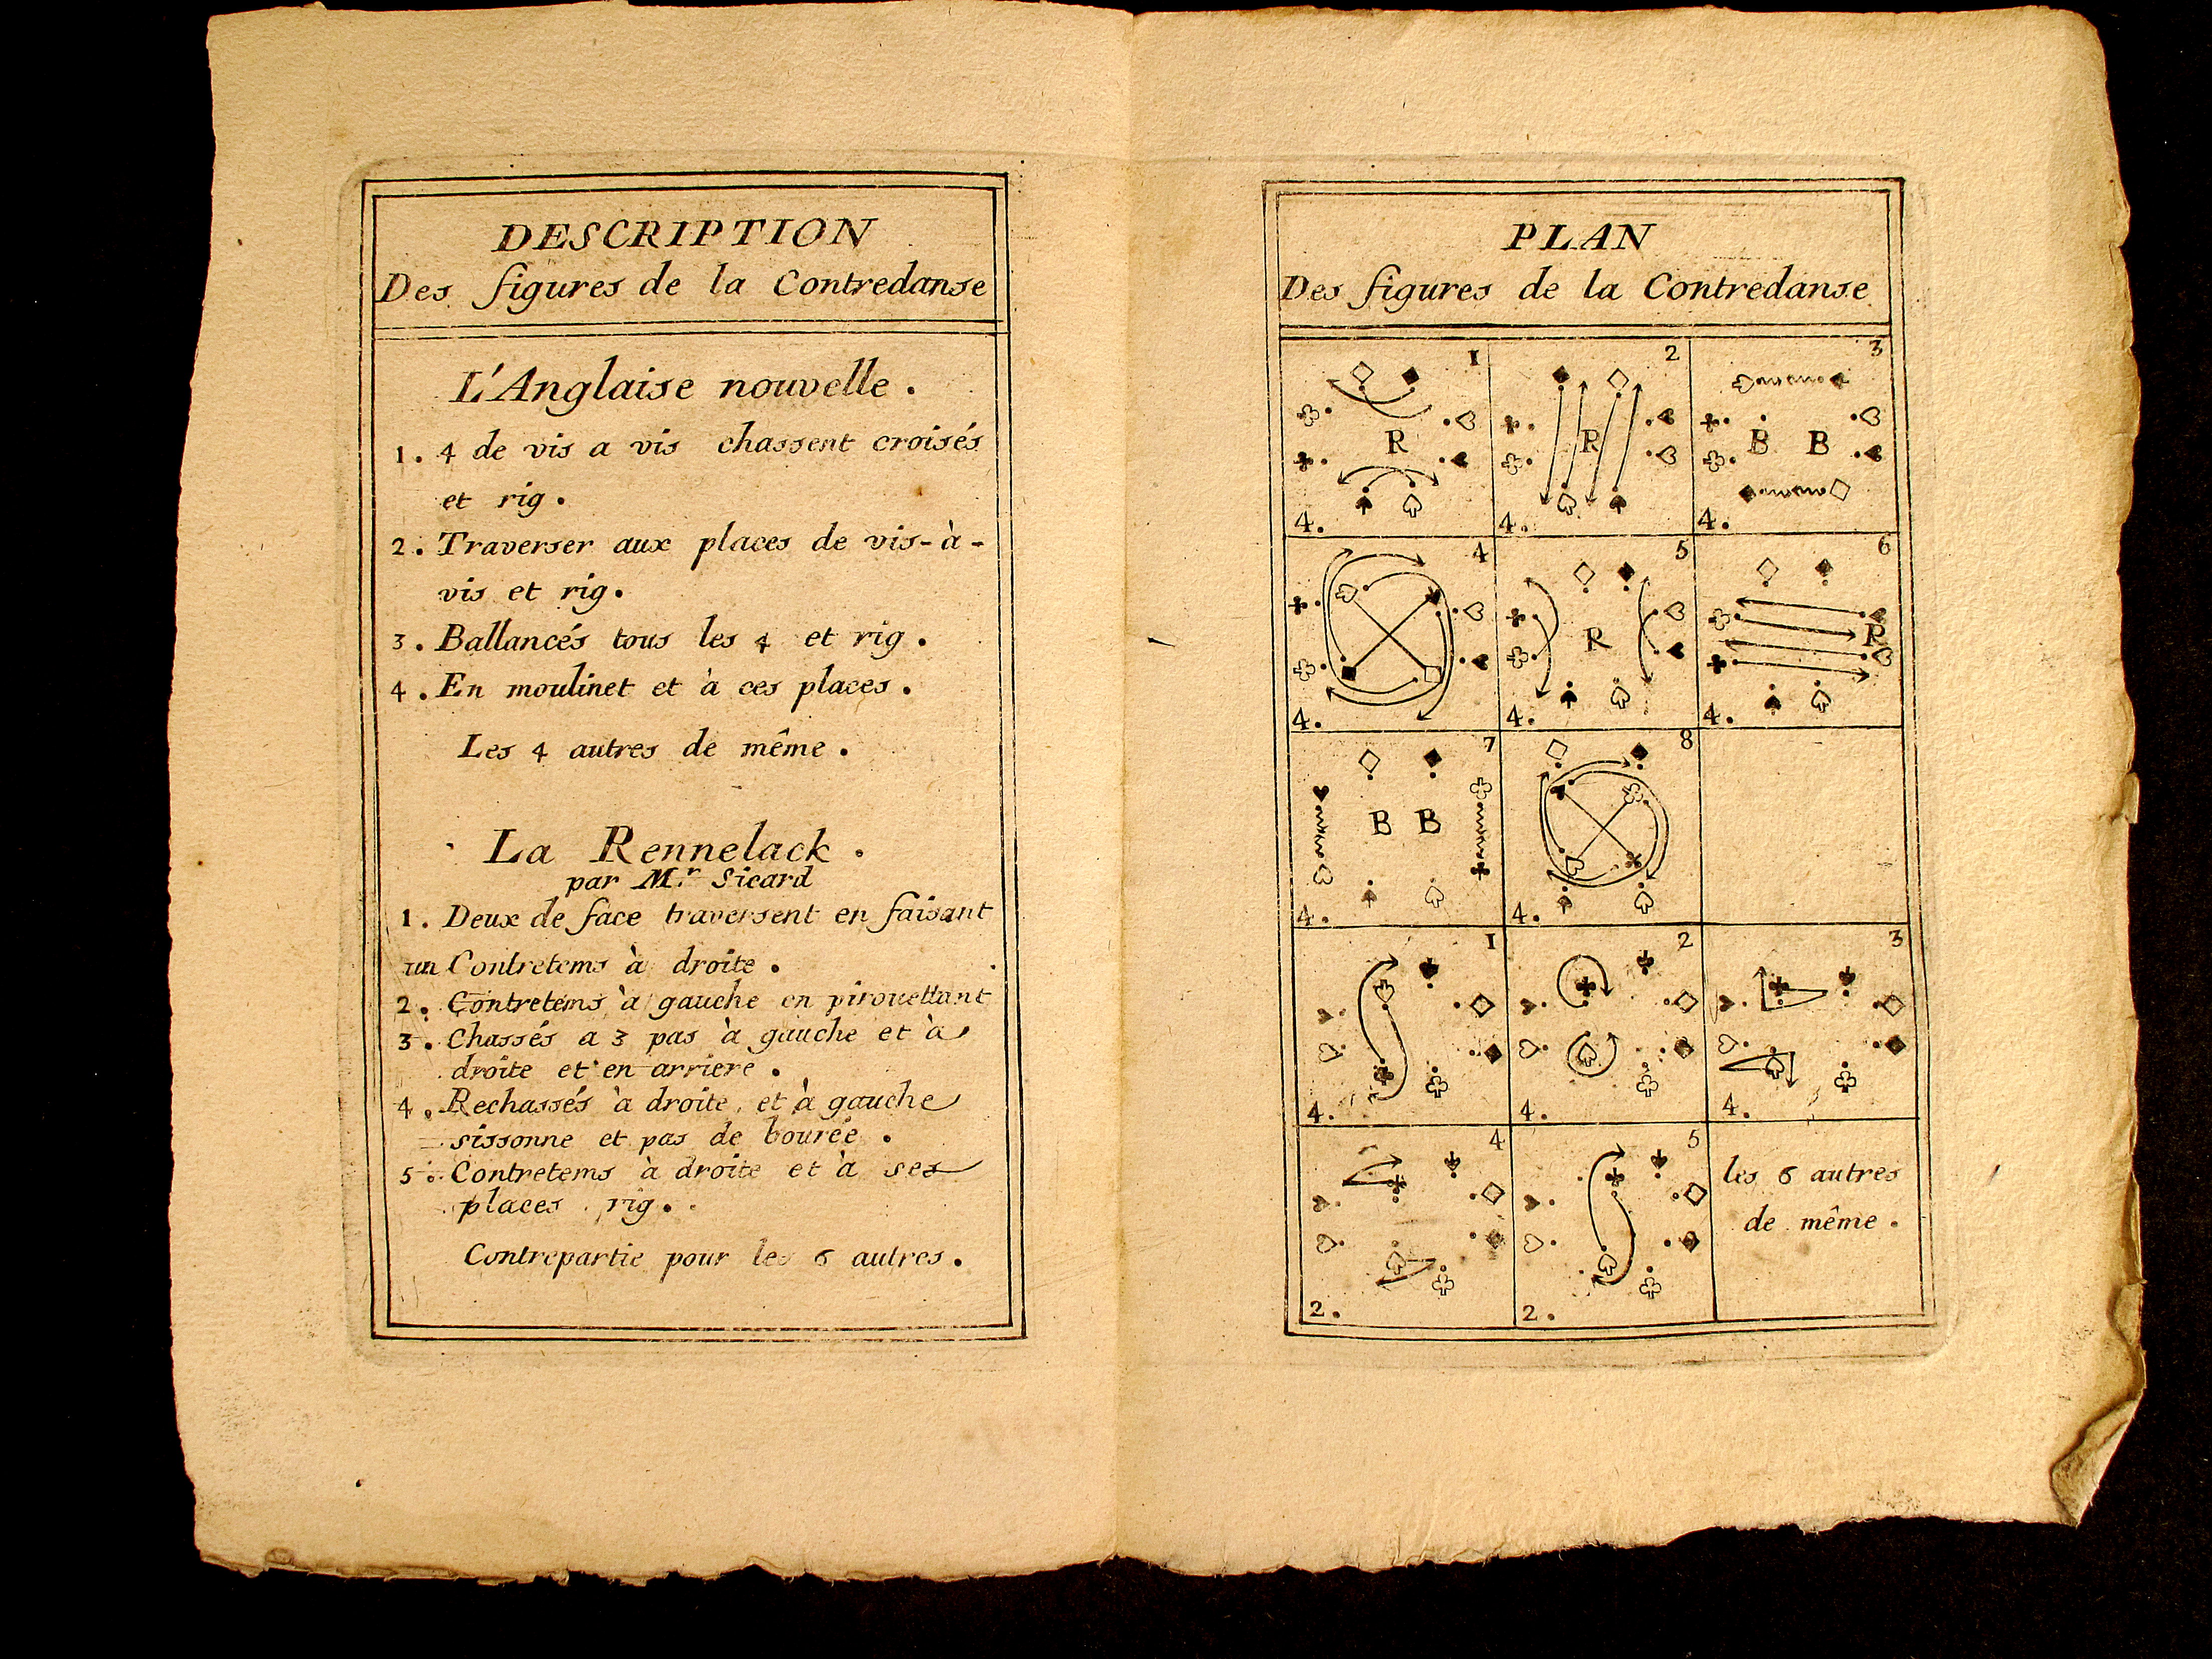 DESCRIPTION
Des figures de la Contredanse
L'Anglaise nouvelle.
1. 4 de vis a vis chassent croisés
et rig.
2. Traverser aux places de vis-à-
vis et rig.
3. Ballancés tous les 4 et rig.
4. En moulinet et à ces places.
Les 4 autres de même.
La Rennelack.
par M.r Sicard
1. Deux de face traversent en faisant
un Contretems à droite.
2. Contretems à gauche en pirouettant
3. Chassés a 3 pas à gauche et à
droite et en arriere.
4. Rechassés à droite, et à gauche
sissonne et pas de bourée.
5. Contretems à droite et à ses
places rig.
Contrepartie pour les 6 autres.
PLAN
Des figures de la Contredanse
1
R
4.
2
R
4.
3
B B
4.
4
4.
5
R
4.
6
R
4.
7
B B
4.
8
4.
1
4.
2
4.
3
4.
4
2.
5
2.
les 6 autres
de même.